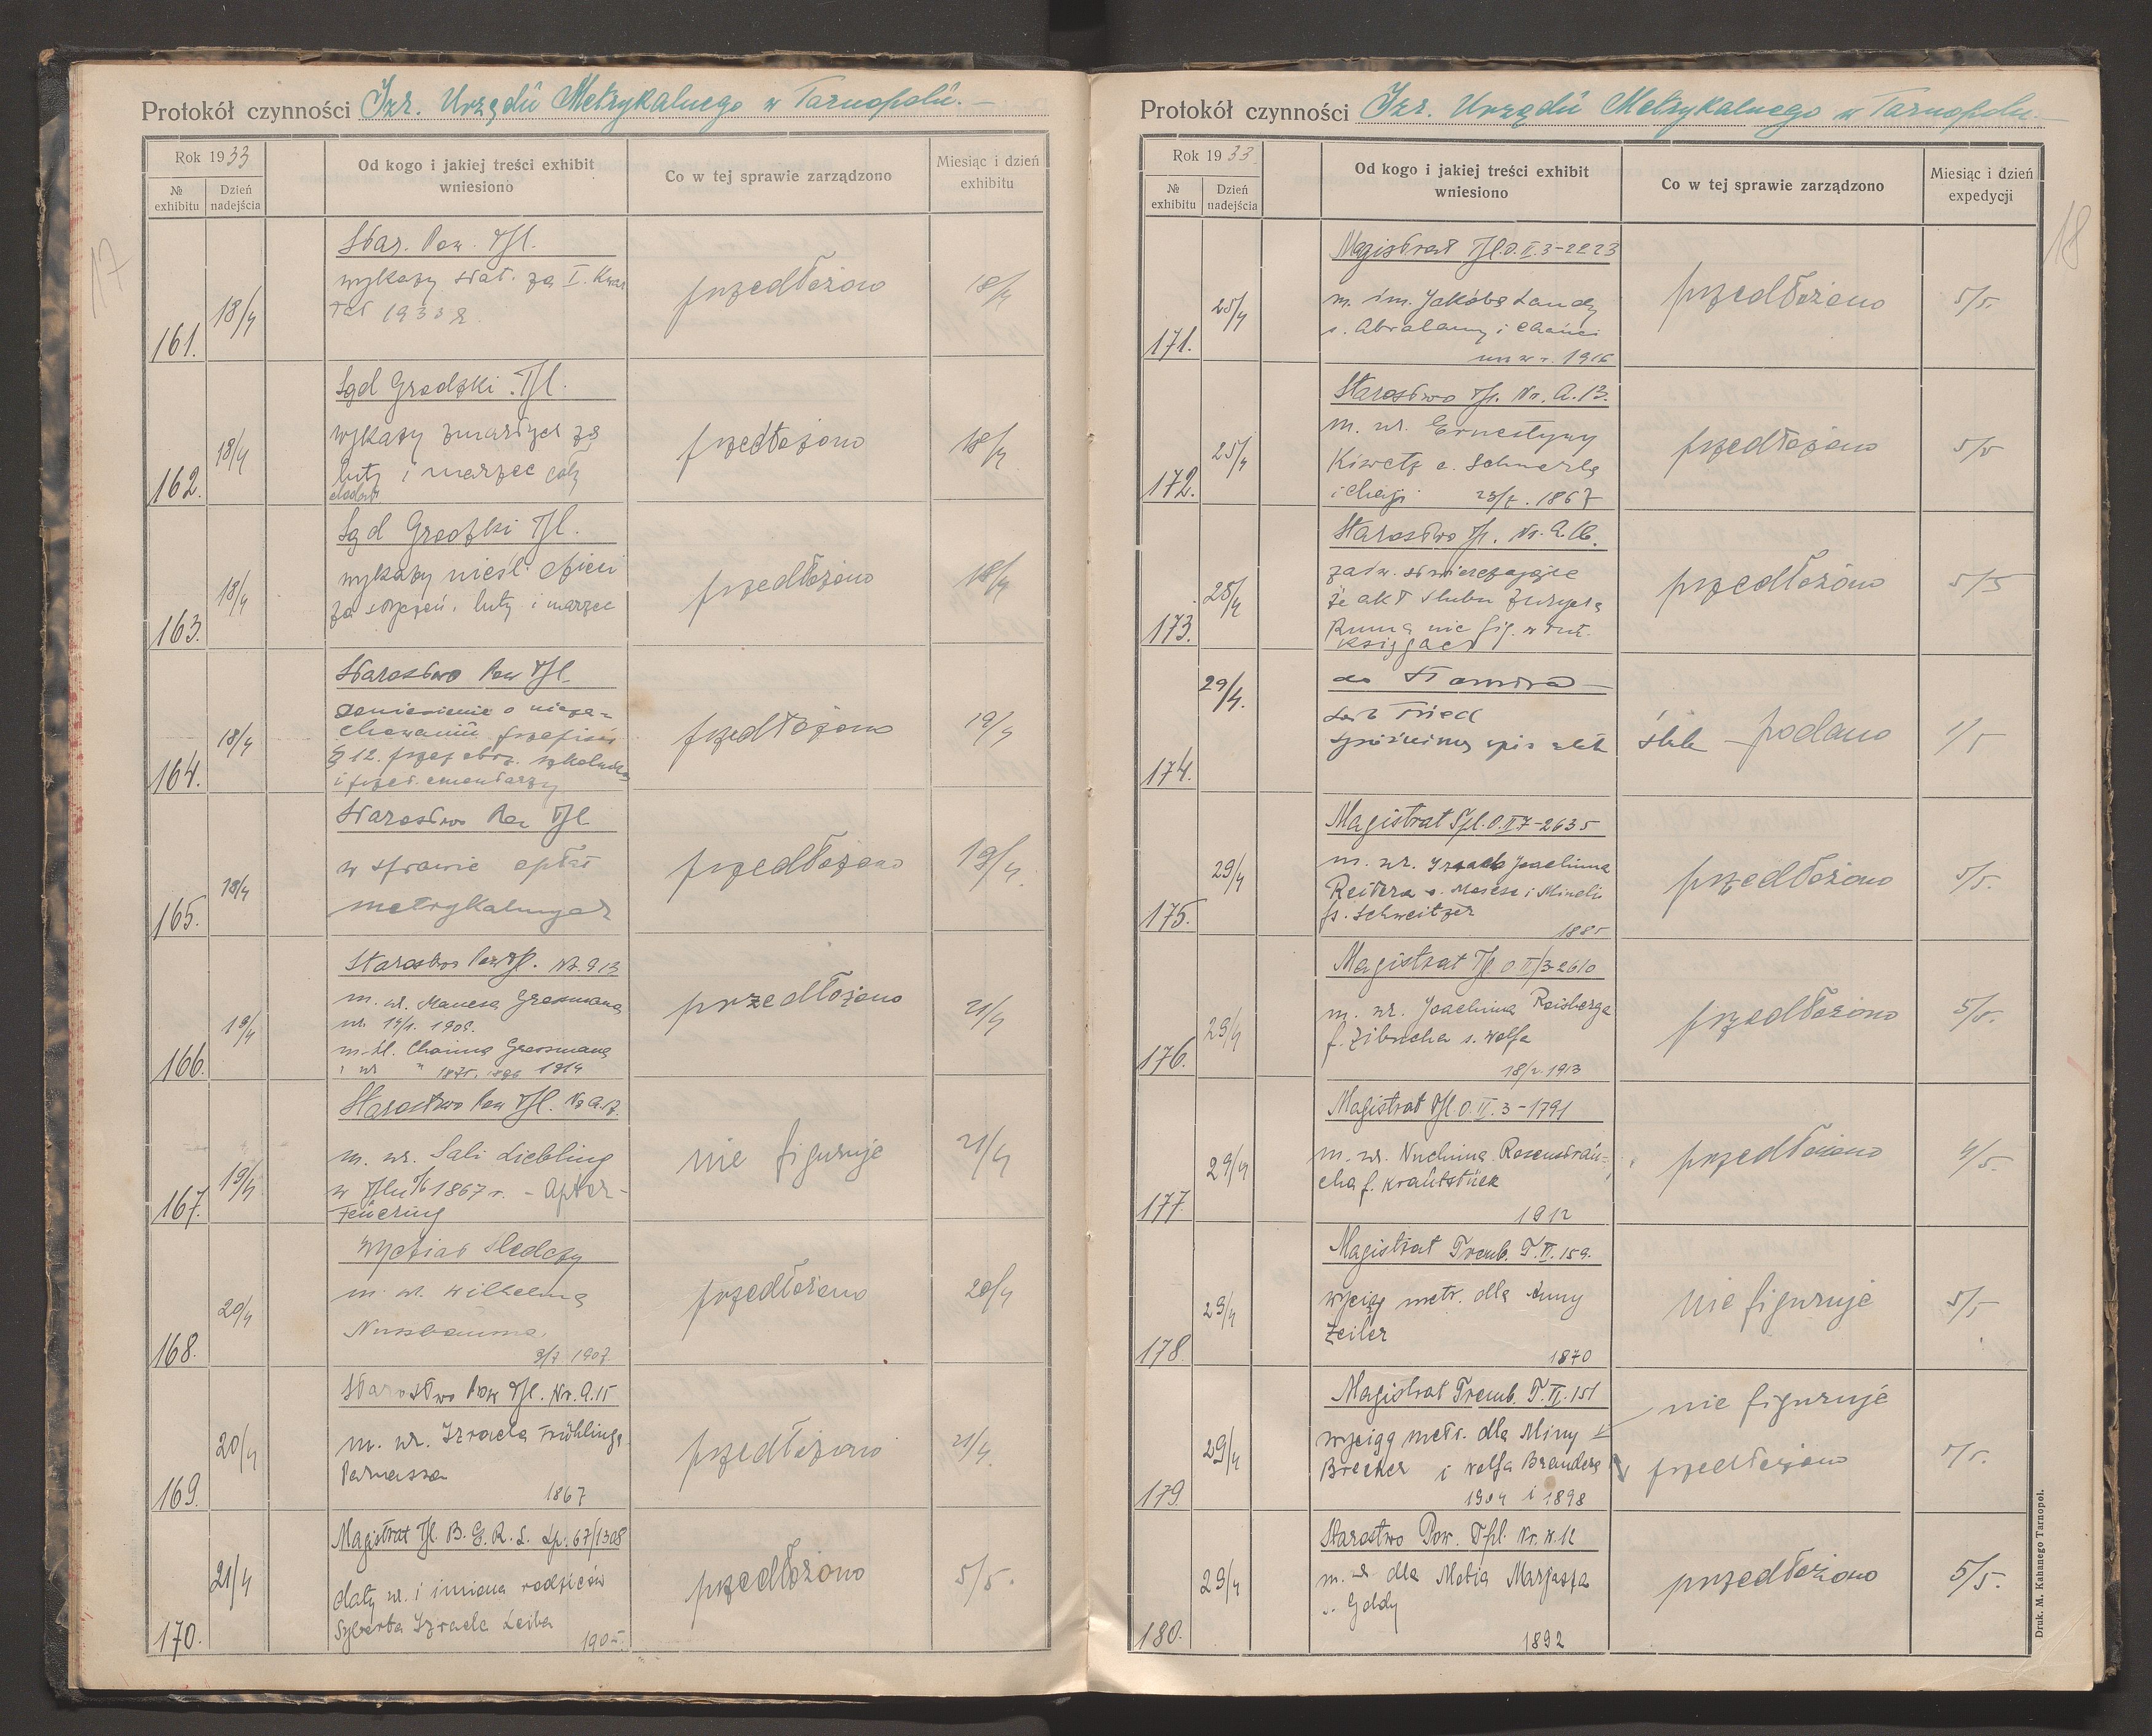 17
Protokół czynności Izr. Urzędu Metrykalnego w Tarnopolu.
Rok 1933
№ exhibitu
Dzień nadejścia
Od kogo i jakiej treści exhibit wniesiono
Co w tej sprawie zarządzono
Miesiąc i dzień exhibitu
161. 18/4
Star. Pow. Tpl.
wykazy stat. za I. Kwar
tał 1933 r.
przedłożono 18/4
162. 18/4
Sąd Grodzki Tpl.
wykazy zmarłych za
luty i marzec
przedłożono 18/4
163. 18/4
Sąd Grodzki Tpl.
wykazy nieśl. dzieci
za styczeń, luty i marzec
przedłożono 18/4
164. 18/4
Starostwo Pow Tpl.
doniesienie o nieza-
chowaniu przepisu
§ 12.
przedłożono 19/4
165. 18/4
Starostwo Pow Tpl
w sprawie opłat
metrykalnych
przedłożono 19/4
166. 19/4
Starostwo Pow Tpl. Nr. 913
m. ur. Manesa Grossmana
m. śl. Chaima Grossmana
1914
przedłożono 21/4
167. 19/4
Starostwo Pow Tpl.
m. ur. Sali Liebling
1867 r.
nie figuruje 21/4
168. 20/4
Wydział śledczy
m. ur. Wilhelma
Nussbauma
1907
przedłożono 20/4
169. 20/4
Starostwo Pow Tpl. Nr. A.15
m. ur. Izraela Frühlinga
Parnassa
1867
przedłożono 21/4
170. 21/4
Magistrat Tpl. B. G. R. L. Lp. 67/1308
daty ur. i imiona rodziców
Izraela Leiba
przedłożono 5/5.
18
Protokół czynności Izr. Urzędu Metrykalnego w Tarnopolu.
Rok 1933
№ exhibitu
Dzień nadejścia
Od kogo i jakiej treści exhibit wniesiono
Co w tej sprawie zarządzono
Miesiąc i dzień expedycji
171. 25/4
Magistrat Tpl. O. II. 3-2223
m. im. Jakóba Landy
s. Abrahama i
1916
przedłożono 5/5.
172. 25/4
Starostwo Tpl. Nr. A.13.
m. ur. Ernestyny
Kiwetz c. Schmerla
i Chaji 1867
przedłożono 5/5
173. 28/4
Starostwo Tpl.
zaśw. stwierdzające
że akt ślubu
nie fig. w tut.
księgach
przedłożono 5/5
174. 29/4.
spóźniony wpis
podano 1/5
175. 29/4
Magistrat Tpl. O. II 7-2635
m. ur. Joachima
Reitera s. Mosesa i Mindli
Schweitzer
1885
przedłożono 5/5.
176. 29/4
Magistrat Tpl. O II/3-2610
m. ur. Joachima Reisberga
f. Zilbucha s. Wolfa
1913
przedłożono 5/5.
177. 29/4
Magistrat Tpl. O. II. 3-1791
m. ur. Nuchima Rosensträu-
cha f. Krautstück
1912
przedłożono 4/5.
178. 29/4
Magistrat Tremb. T. II. 159.
wyciąg metr. dla Anny
Zeiler
1870
nie figuruje 5/5
179. 29/4
Magistrat Tremb. T. II. 151
wyciąg metr. dla Miny
Brecher i Wolfa Brandesa
1904 i 1898
nie figuruje
przedłożono
180. 29/4
Starostwo Pow. Tpl. Nr. W. 12
m. ur dla Matia
s. Goldy
1892
przedłożono 5/5.
Druk. M. Kahanego Tarnopol.